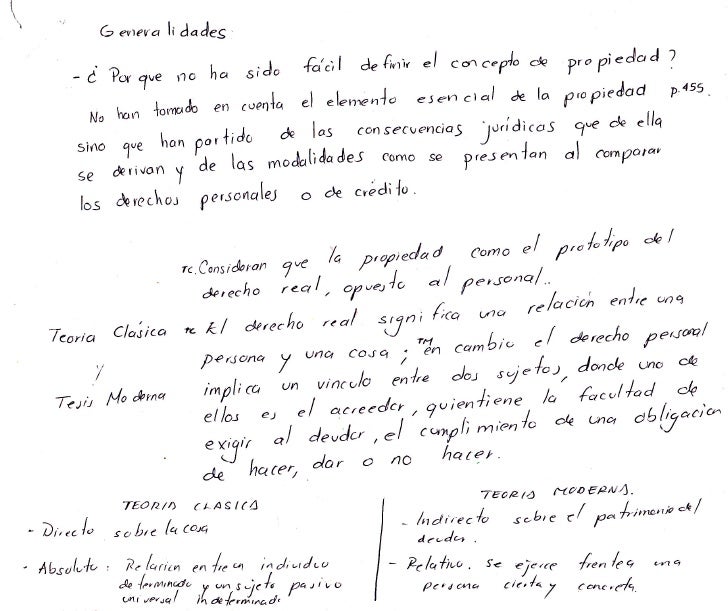 Generalidades
- ¿ Por que no ha sido fácil definir el concepto de propiedad?
No han tomado en cuenta el elemento esencial de la propiedad p.455.
sino que han partido de las consecuencias jurídicas que de ella
se derivan y de las modalidades como se presentan al comparar
los derechos personales o de crédito.
TC. Consideran que la propiedad como el prototipo del
derecho real, opuesto al personal..
Teoria Clásica
y
Tesis Moderna
TC El derecho real significa una relación entre una
persona y una cosa; TM en cambio el derecho personal
implica un vinculo entre dos sujetos, donde uno de
ellos es el acreedor, quientiene la facultad de
exigir al deudor, el cumplimiento de una obligación
de hacer, dar o no hacer.
TEORIA CLASICA
- Directo sobre la cosa
- Absoluto: Relacion entre un individuo
determinado y un sujeto pasivo
universal indeterminado
TEORIA MODERNA.
- Indirecto sobre el patrimonio del
deudor.
- Relativo. se ejerce frente a una
persona cierta y concreta.